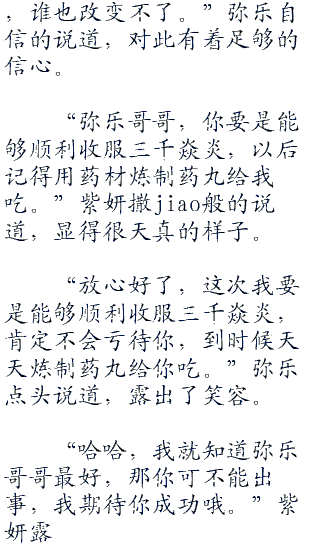 ，谁也改变不了。”弥乐自
信的说道，对此有着足够的
信心。
“弥乐哥哥，你要是能
够顺利收服三千焱炎，以后
记得用药材炼制药丸给我
吃。”紫妍撒jiao般的说
道，显得很天真的样子。
“放心好了，这次我要
是能够顺利收服三千焱炎，
肯定不会亏待你，到时候天
天炼制药丸给你吃。”弥乐
点头说道，露出了笑容。
“哈哈，我就知道弥乐
哥哥最好，那你可不能出
事，我期待你成功哦。”紫
妍露